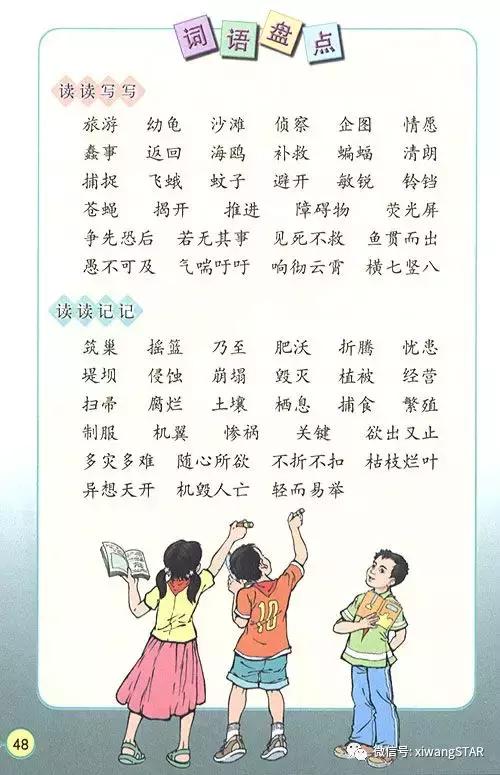 词语盘点
读读写写
旅游 幼龟 沙滩 侦察 企图 情愿
蠢事 返回 海鸥 补救 蝙蝠 清朗
捕捉 飞蛾 蚊子 避开 敏锐 铃铛
苍蝇 揭开 推进 障碍物 荧光屏
争先恐后 若无其事 见死不救 鱼贯而出
愚不可及 气喘吁吁 响彻云霄 横七竖八
读读记记
筑巢 摇篮 乃至 肥沃 折腾 忧患
堤坝 侵蚀 崩塌 毁灭 植被 经营
扫帚 腐烂 土壤 栖息 捕食 繁殖
制服 机翼 惨祸 关键 欲出又止
多灾多难 随心所欲 不折不扣 枯枝烂叶
异想天开 机毁人亡 轻而易举
10
48
微信号: xiwangSTAR